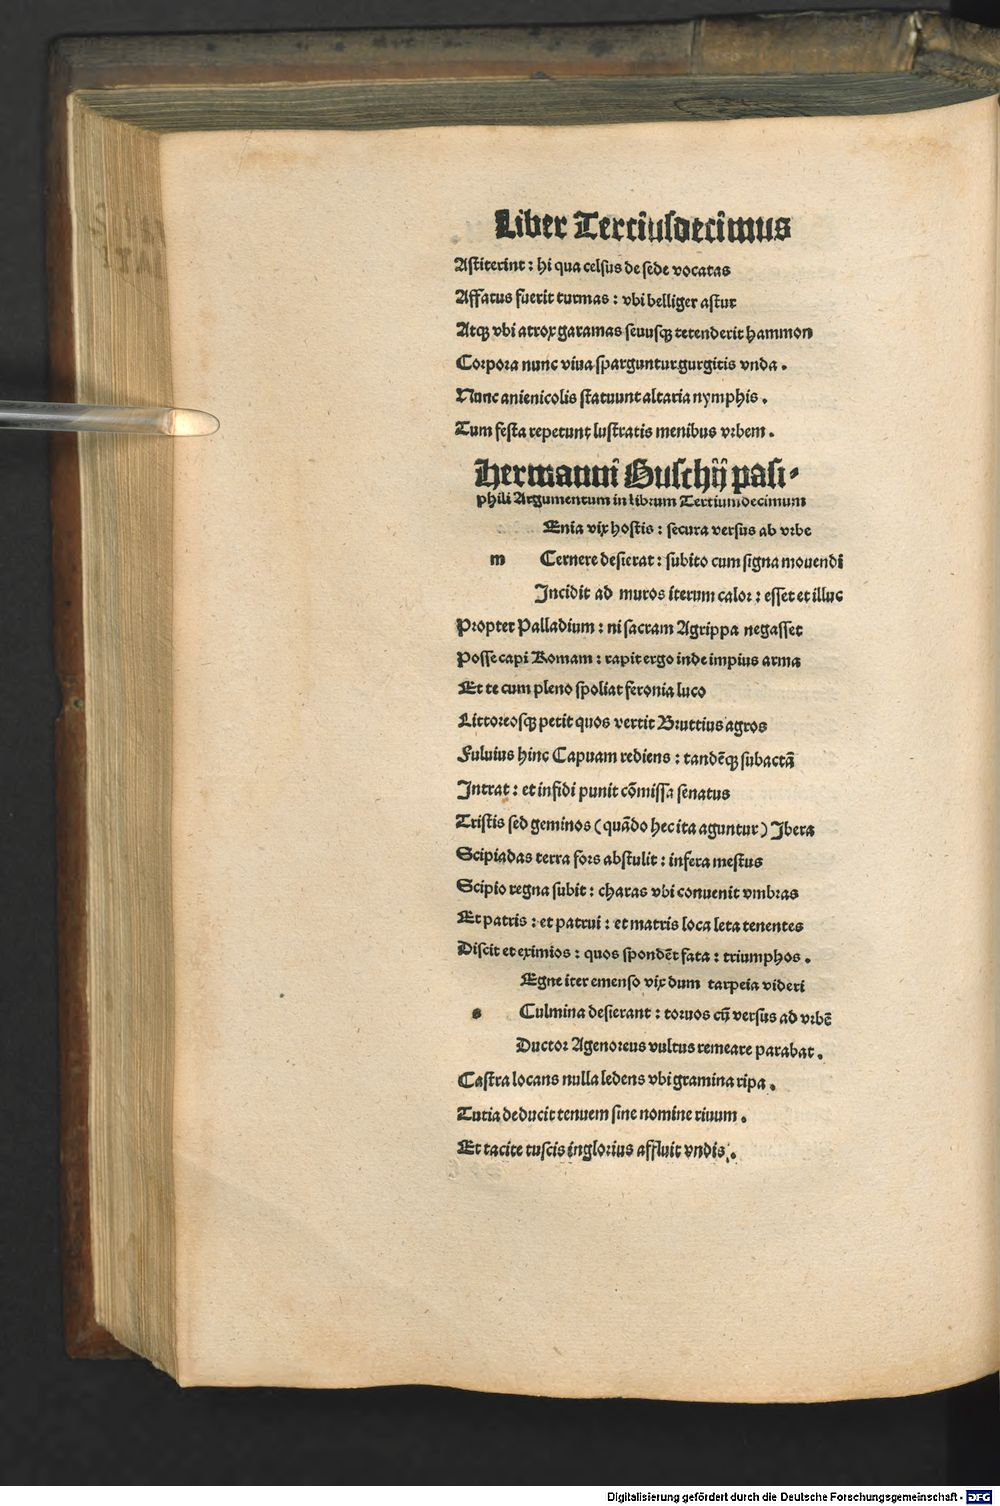 Liber Terciusdecimus
Astiterint : hi qua celsus de sede vocatas
Affatus fuerit turmas : vbi belliger astur
Atqꝫ vbi atrox garamas seuusqꝫ tetenderit hammon
Corpora nunc viua sparguntur gurgitis vnda .
Nunc anienicolis statuunt altaria nymphis .
Tum festa repetunt lustratis menibus vrbem .
Hermanni Buschij pasi⸗
phili Argumentum in librum Tertiumdecimum
Enia vix hostis : secura versus ab vrbe
m Cernere desierat : subito cum signa mouendi
Incidit ad muros iterum calor : esset et illuc
Propter Palladium : ni sacram Agrippa negasset
Posse capi Romam : rapit ergo inde impius arma
Et te cum pleno spoliat feronia luco
Littoreosqꝫ petit quos vertit Bruttius agros
Fuluius hinc Capuam rediens : tandēqꝫ subactā
Intrat : et infidi punit cōmissa senatus
Tristis sed geminos ( quādo hec ita aguntur ) Ibera
Scipiadas terra fors abstulit : infera mestus
Scipio regna subit : charas vbi conuenit vmbras
Et patris : et patrui : et matris loca leta tenentes
Discit et eximios : quos spondēt fata : triumphos .
Egne iter emenso vix dum tarpeia videri
s Culmina desierant : toruos cū versus ad vrbē
Ductor Agenoreus vultus remeare parabat .
Castra locans nulla ledens vbi gramina ripa .
Tutia deducit tenuem sine nomine riuum .
Et tacite tuscis inglorius affluit vndis .
Digitalisierung gefördert durch die Deutsche Forschungsgemeinschaft - DFG